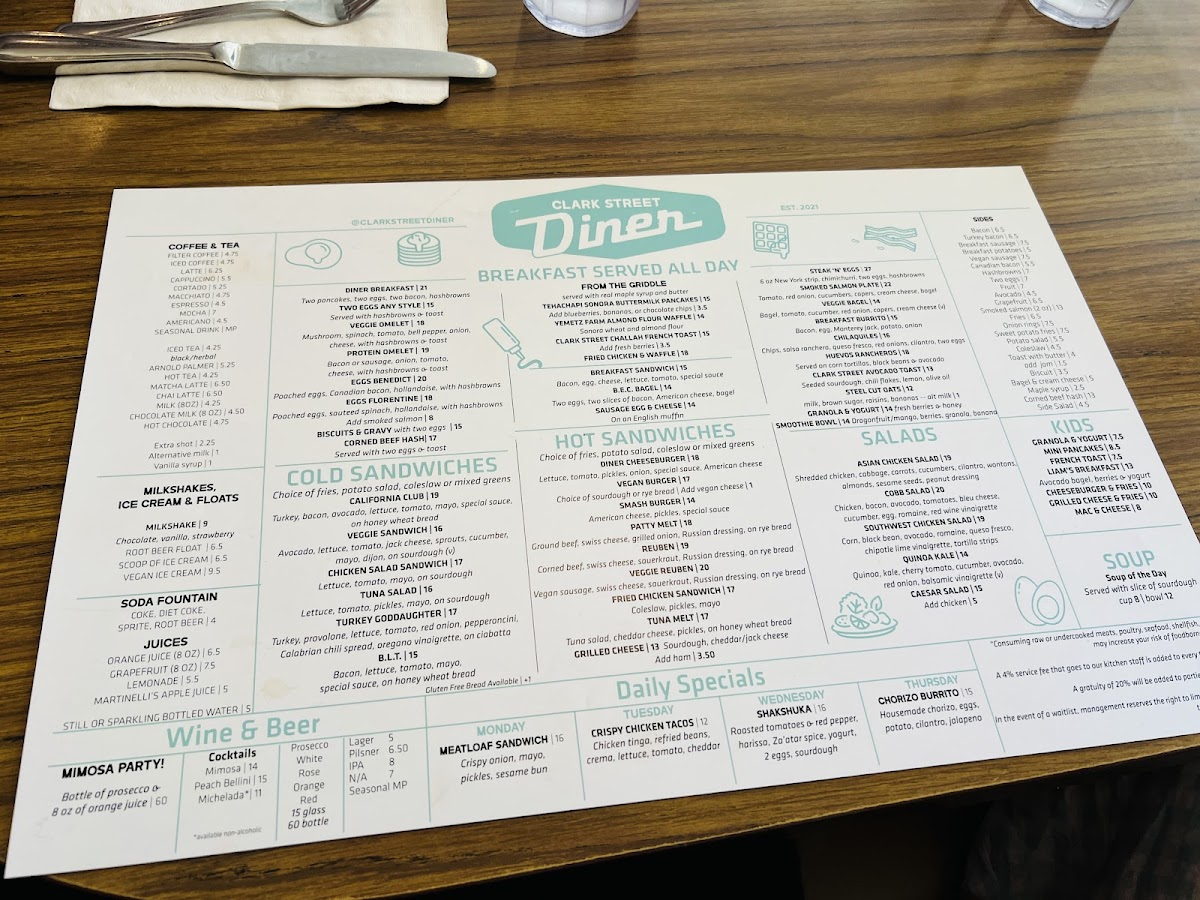 CLARK STREET
Diner
@CLARKSTREETDINER
EST. 2021
COFFEE & TEA
FILTER COFFEE | 4.75
ICED COFFEE | 4.75
LATTE | 6.25
CAPPUCCINO | 5.5
CORTADO | 5.25
MACCHIATO | 4.75
ESPRESSO | 4.5
MOCHA | 7
AMERICANO | 4.5
SEASONAL DRINK | MP
ICED TEA | 4.25
black/herbal
ARNOLD PALMER | 5.25
HOT TEA | 4.25
MATCHA LATTE | 6.50
CHAI LATTE | 6.50
MILK (8OZ) | 4.25
CHOCOLATE MILK (8 OZ) | 4.50
HOT CHOCOLATE | 4.75
Extra shot | 2.25
Alternative milk | 1
Vanilla syrup | 1
MILKSHAKES,
ICE CREAM & FLOATS
MILKSHAKE | 9
Chocolate, vanilla, strawberry
ROOT BEER FLOAT | 6.5
SCOOP OF ICE CREAM | 6.5
VEGAN ICE CREAM | 9.5
SODA FOUNTAIN
COKE, DIET COKE,
SPRITE, ROOT BEER | 4
JUICES
ORANGE JUICE (8 OZ) | 6.5
GRAPEFRUIT (8 OZ) | 7.5
LEMONADE | 5.5
MARTINELLI'S APPLE JUICE | 5
STILL OR SPARKLING BOTTLED WATER | 5
BREAKFAST SERVED ALL DAY
DINER BREAKFAST | 21
Two pancakes, two eggs, two bacon, hashbrowns
TWO EGGS ANY STYLE | 15
Served with hashbrowns & toast
VEGGIE OMELET | 18
Mushroom, spinach, tomato, bell pepper, onion,
cheese, with hashbrowns & toast
PROTEIN OMELET | 19
Bacon or sausage, onion, tomato,
cheese, with hashbrowns & toast
EGGS BENEDICT | 20
Poached eggs, Canadian bacon, hollandaise, with hashbrowns
EGGS FLORENTINE | 18
Poached eggs, sauteed spinach, hollandaise, with hashbrowns
Add smoked salmon | 8
BISCUITS & GRAVY with two eggs | 15
CORNED BEEF HASH| 17
Served with two eggs & toast
FROM THE GRIDDLE
served with real maple syrup and butter
TEHACHAPI SONORA BUTTERMILK PANCAKES | 15
Add blueberries, bananas, or chocolate chips | 3.5
YEMETZ FARM ALMOND FLOUR WAFFLE | 14
Sonora wheat and almond flour
CLARK STREET CHALLAH FRENCH TOAST | 15
Add fresh berries | 3.5
FRIED CHICKEN & WAFFLE | 18
BREAKFAST SANDWICH | 15
Bacon, egg, cheese, lettuce, tomato, special sauce
B.E.C. BAGEL | 14
Two eggs, two slices of bacon, American cheese, bagel
SAUSAGE EGG & CHEESE | 14
On an English muffin
STEAK 'N' EGGS | 27
6 oz New York strip, chimichurri, two eggs, hashbrowns
SMOKED SALMON PLATE | 22
Tomato, red onion, cucumbers, capers, cream cheese, bagel
VEGGIE BAGEL | 14
Bagel, tomato, cucumber, red onion, capers, cream cheese (v)
BREAKFAST BURRITO | 15
Bacon, egg, Monterey jack, potato, onion
CHILAQUILES | 16
Chips, salsa ranchero, queso fresco, red onions, cilantro, two eggs
HUEVOS RANCHEROS | 18
Served on corn tortillas, black beans & avocado
CLARK STREET AVOCADO TOAST | 13
Seeded sourdough, chili flakes, lemon, olive oil
STEEL CUT OATS | 12
milk, brown sugar, raisins, bananas -- alt milk | 1
GRANOLA & YOGURT | 14 fresh berries & honey
SMOOTHIE BOWL | 14 Dragonfruit/mango, berries, granola, banana
SIDES
Bacon | 6.5
Turkey bacon | 6.5
Breakfast sausage | 7.5
Breakfast potatoes | 5
Vegan sausage | 7.5
Canadian bacon | 5.5
Hashbrowns | 7
Two eggs | 7
Fruit | 7
Avocado | 4.5
Grapefruit | 6.5
Smoked salmon (2 oz) | 13
Fries | 6.5
Onion rings | 7.5
Sweet potato fries | 7.5
Potato salad | 5.5
Coleslaw | 4.5
Toast with butter | 4
add. jam | 1.5
Biscuit | 3.5
Bagel & cream cheese | 5
Maple syrup | 2.5
Corned beef hash | 13
Side Salad | 4.5
COLD SANDWICHES
Choice of fries, potato salad, coleslaw or mixed greens
CALIFORNIA CLUB | 19
Turkey, bacon, avocado, lettuce, tomato, mayo, special sauce,
on honey wheat bread
VEGGIE SANDWICH | 16
Avocado, lettuce, tomato, jack cheese, sprouts, cucumber,
mayo, dijon, on sourdough (v)
CHICKEN SALAD SANDWICH | 17
Lettuce, tomato, mayo, on sourdough
TUNA SALAD | 16
Lettuce, tomato, pickles, mayo, on sourdough
TURKEY GODDAUGHTER | 17
Turkey, provolone, lettuce, tomato, red onion, pepperoncini,
Calabrian chili spread, oregano vinaigrette, on ciabatta
B.L.T. | 15
Bacon, lettuce, tomato, mayo,
special sauce, on honey wheat bread
Gluten Free Bread Available | +1
HOT SANDWICHES
Choice of fries, potato salad, coleslaw or mixed greens
DINER CHEESEBURGER | 18
Lettuce, tomato, pickles, onion, special sauce, American cheese
VEGAN BURGER | 17
Choice of sourdough or rye bread | Add vegan cheese | 1
SMASH BURGER | 14
American cheese, pickles, special sauce
PATTY MELT | 18
Ground beef, swiss cheese, grilled onion, Russian dressing, on rye bread
REUBEN | 19
Corned beef, swiss cheese, sauerkraut, Russian dressing, on rye bread
VEGGIE REUBEN | 20
Vegan sausage, swiss cheese, sauerkraut, Russian dressing, on rye bread
FRIED CHICKEN SANDWICH | 17
Coleslaw, pickles, mayo
TUNA MELT | 17
Tuna salad, cheddar cheese, pickles, on honey wheat bread
GRILLED CHEESE | 13 Sourdough, cheddar/jack cheese
Add ham | 3.50
SALADS
ASIAN CHICKEN SALAD | 19
Shredded chicken, cabbage, carrots, cucumbers, cilantro, wontons,
almonds, sesame seeds, peanut dressing
COBB SALAD | 20
Chicken, bacon, avocado, tomatoes, bleu cheese,
cucumber, egg, romaine, red wine vinaigrette
SOUTHWEST CHICKEN SALAD | 19
Corn, black bean, avocado, romaine, queso fresco,
chipotle lime vinaigrette, tortilla strips
QUINOA KALE | 14
Quinoa, kale, cherry tomato, cucumber, avocado,
red onion, balsamic vinaigrette (v)
CAESAR SALAD | 15
Add chicken | 5
KIDS
GRANOLA & YOGURT | 7.5
MINI PANCAKES | 8.5
FRENCH TOAST | 7.5
LIAM'S BREAKFAST | 13
Avocado bagel, berries & yogurt
CHEESEBURGER & FRIES | 10
GRILLED CHEESE & FRIES | 10
MAC & CHEESE | 8
SOUP
Soup of the Day
Served with slice of sourdough
cup 8 | bowl 12
Wine & Beer
MIMOSA PARTY!
Bottle of prosecco &
8 oz of orange juice | 60
Cocktails
Mimosa | 14
Peach Bellini | 15
Michelada* | 11
*available non-alcoholic
Prosecco
White
Rose
Orange
Red
15 glass
60 bottle
Lager 5
Pilsner 6.50
IPA 8
N/A 7
Seasonal MP
Daily Specials
MONDAY
MEATLOAF SANDWICH | 16
Crispy onion, mayo,
pickles, sesame bun
TUESDAY
CRISPY CHICKEN TACOS | 12
Chicken tinga, refried beans,
crema, lettuce, tomato, cheddar
WEDNESDAY
SHAKSHUKA | 16
Roasted tomatoes & red pepper,
harissa, Za'atar spice, yogurt,
2 eggs, sourdough
THURSDAY
CHORIZO BURRITO | 15
Housemade chorizo, eggs,
potato, cilantro, jalapeno
*Consuming raw or undercooked meats, poultry, seafood, shellfish,
may increase your risk of foodborn
A 4% service fee that goes to our kitchen staff is added to every
A gratuity of 20% will be added to partie
In the event of a waitlist, management reserves the right to lim